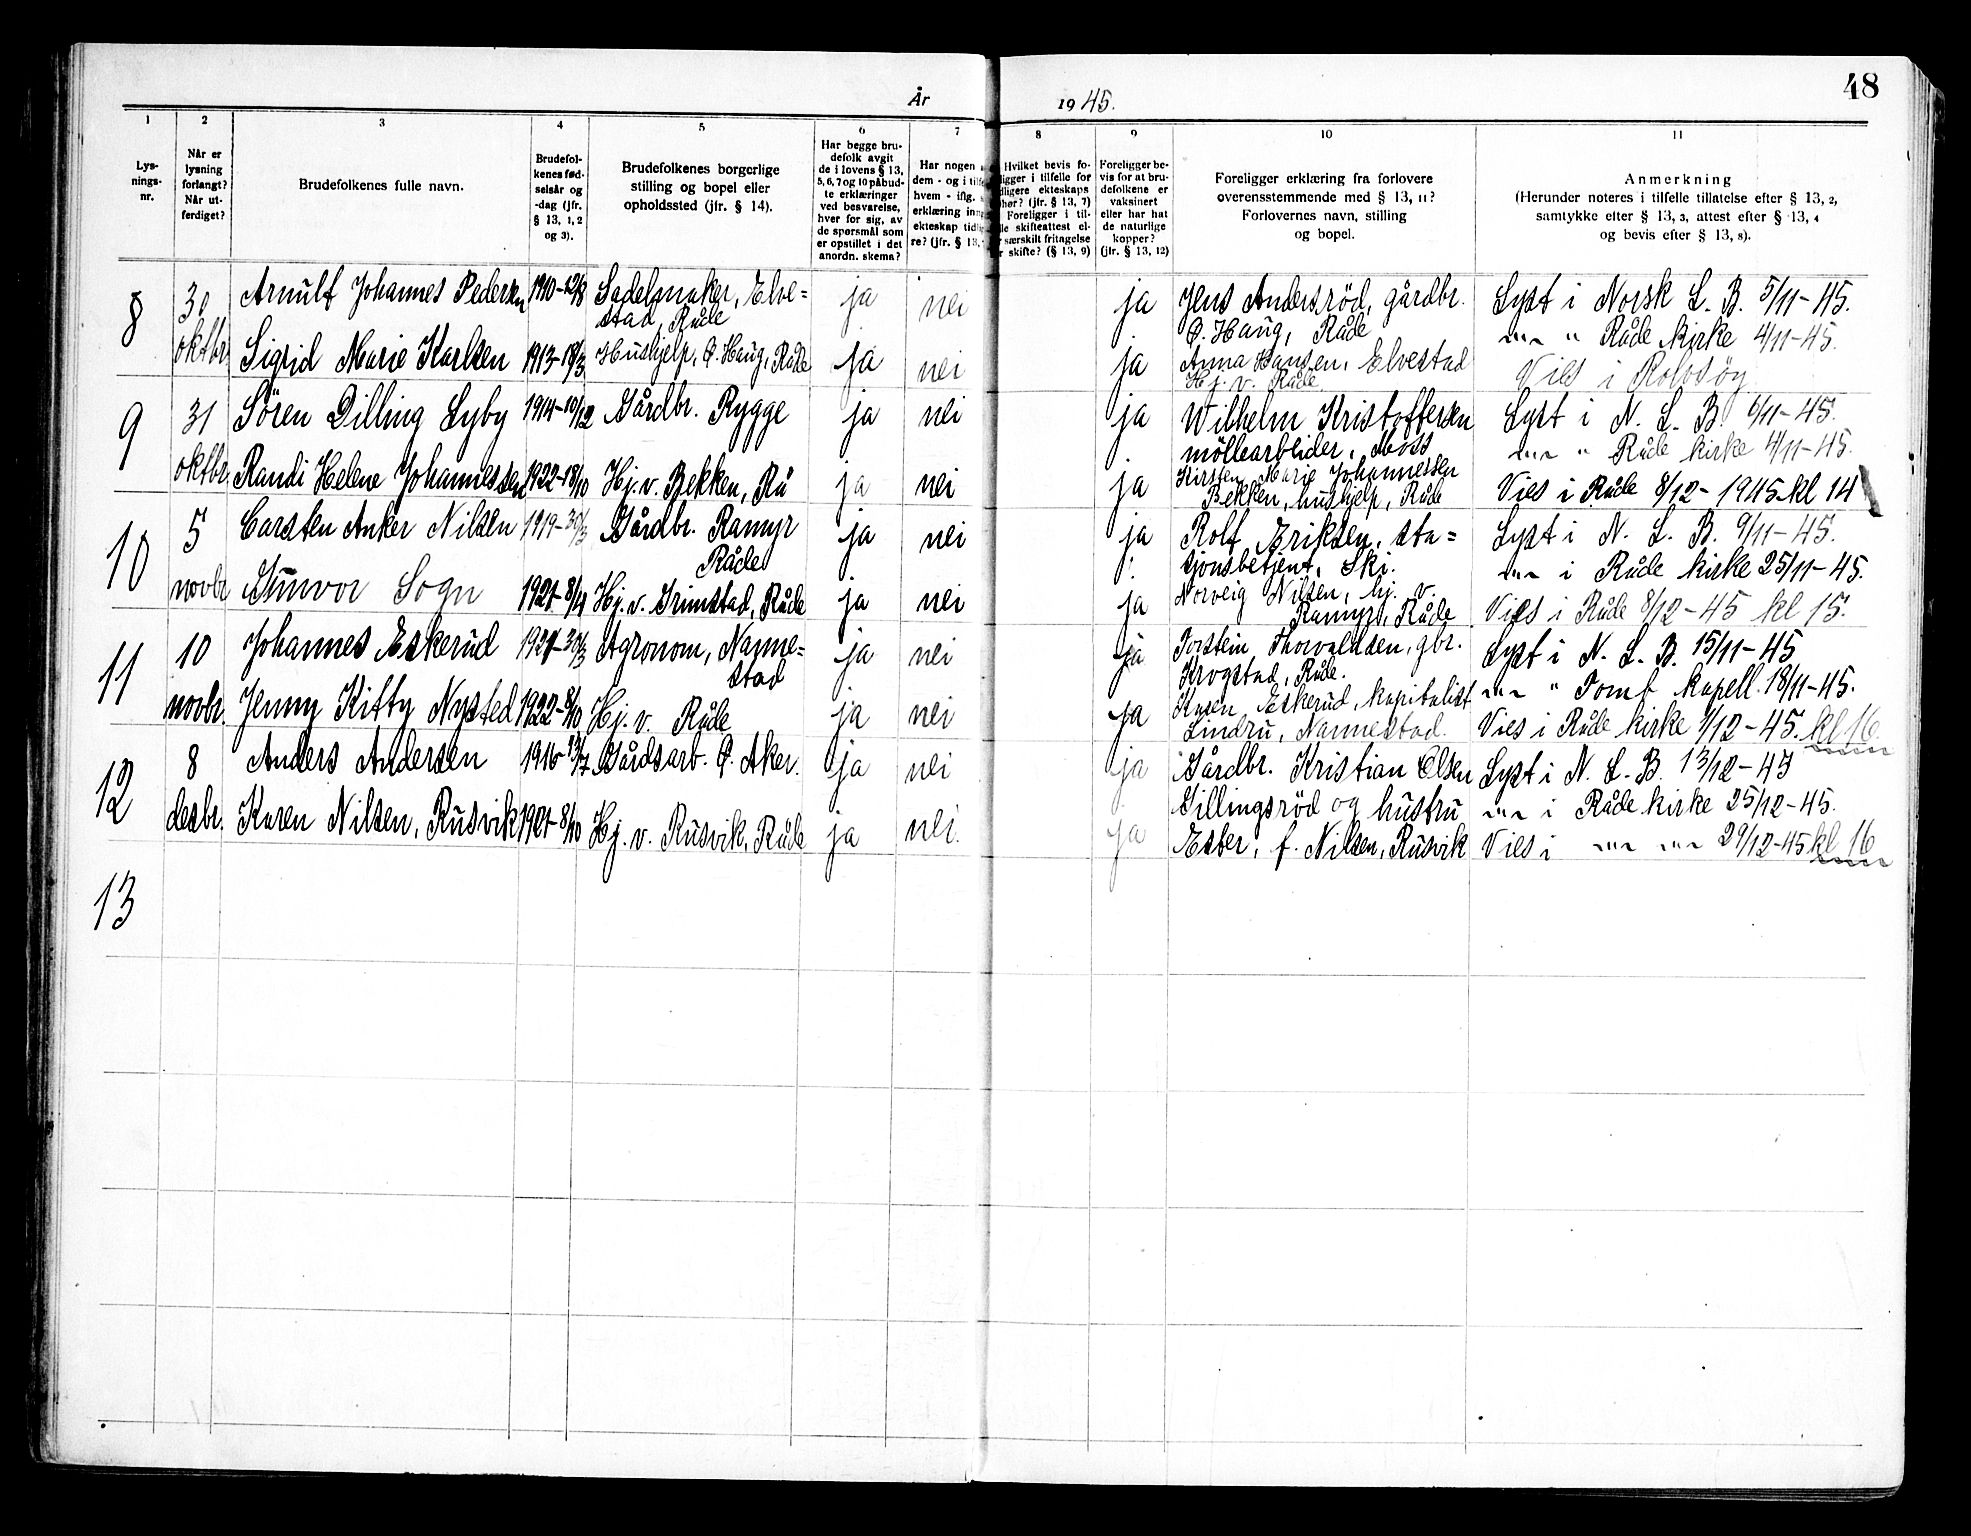 48
År 1945.
1 2 3 4 5 6 7 8 9 10 11
Lys-
nings-
nr.
Når er
lysning
forlangt?
Når ut-
ferdiget?
Brudefolkenes fulle navn.
Brudefol-
kenes fød-
selsår og
-dag (jfr.
§ 13, 1, 2
og 3).
Brudefolkenes borgerlige
stilling og bopel eller
opholdssted (jfr. § 14).
Har begge bru-
defolk avgit
de i lovens § 13,
5, 6, 7 og 10 påbud-
te erklæringer
ved besvarelse,
hver for sig, av
de spørsmål som
er opstillet i det
anordn. skema?
Har nogen
dem - og i
hvem - iflg.
erklæring
ekteskap
re? (jfr. § 13,
Hvilket bevis fo-
ligger i tilfelle for
dligere ekteskaps
hør? (jfr. § 13, 7)
Foreligger i til-
le skifteattest el-
r særskilt fritagelse
r skifte? (§ 13, 9)
Foreligger be-
vis for at bru-
defolkene er
vaksinert
eller har hat
de naturlige
kopper?
(jfr. § 13, 12)
Foreligger erklæring fra forlovere
overensstemmende med § 13, 11?
Forlovernes navn, stilling
og bopel.
Anmerkning
(Herunder noteres i tilfelle tillatelse efter § 13, 2,
samtykke efter § 13, 3, attest efter § 13, 4
og bevis efter § 13, 8).
8 30 Arnulf Johannes Pedersen 1910-12/8 Sadelmaker, Elve= ja nei ja Jens Andersröd, gårdbr. Lyst i Norsk L. B. 5/11-45.
stad, Råde Ö. Haug, Råde
oktbr. Sigrid Marie Karlsen 1913-18/3 Hushjelp, Ö. Haug, Råde ja nei ja Anna Hansen, Elvestad " Råde kirke 4/11-45.
Hj. v. Råde Vies i Rolvsöy
9 31 Sören Dilling Lyby 1914-10/12 Gårdbr. Rygge ja nei ja Wilhelm Kristoffersen Lyst i N. L. B. 6/11-45.
möllearbeider, Moss " Råde kirke 4/11-45.
oktbr. Randi Helene Johannessen 1922-18/10 Hj. v. Bekken, Rå ja nei ja Kirsten Marie Johannessen
Bekken, hushjelp, Råde Vies i Råde 8/12-1945-kl 14
10 5 Carsten Anker Nilsen 1919-30/3 Gårdbr. Ramyr ja nei ja Rolf Eriksen, sta= Lyst i N. L. B. 9/11-45.
Råde sjonsbetjent, Ski. i Råde kirke 25/11-45.
novbr Gunvor Sogn 1921-8/4 Hj. v. Grimstad, Råde ja nei ja Norveig Nilsen, hj. v.
Ramyr, Råde Vies i Råde 8/12-45 kl 15.
11 10 Johannes Eskerud 1921-30/3 Agronom, Nanne= ja nei ja Torstein Thorvaldsen, gbr. Lyst i N. L. B. 15/11-45
stad Krogstad, Råde. " Tomb kapell. 18/11-45.
novbr. Jenny Kitty Nysted 1922-8/10 Hj. v. Råde ja nei ja Karen Eskerud, kapitalist
Lindru, Nannestad. Vies i Råde kirke 1/12-45. kl 16.
12 8 Anders Andersen 1916-13/7 Gårdsarb. Ö. Aker. ja nei ja Gårdbr. Kristian Olsen Lyst i N. L. B. 13/12-45
Gillingsröd og hustru i Råde kirke 25/12-45.
desbr. Karen Nilsen, Rusvik 1921-8/10 Hj. v. Rusvik, Råde ja nei. ja Ester, f. Nilsen, Rusvik Vies i 29/12-45 kl 16
13